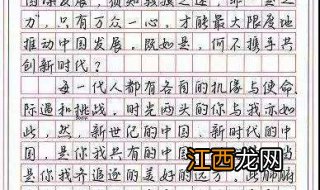 力”，只有万众一心，才能最大限度地
推动中国发展，既如是，何不携手共
创新时代？
每一代人都有各自的机缘与使命
际遇和挑战，时光两头的你与我亦如
此，然，新世纪的中国，新时代的中
国，是你我共有的中国
是你我齐追逐的美好的远方，此
江西龙网